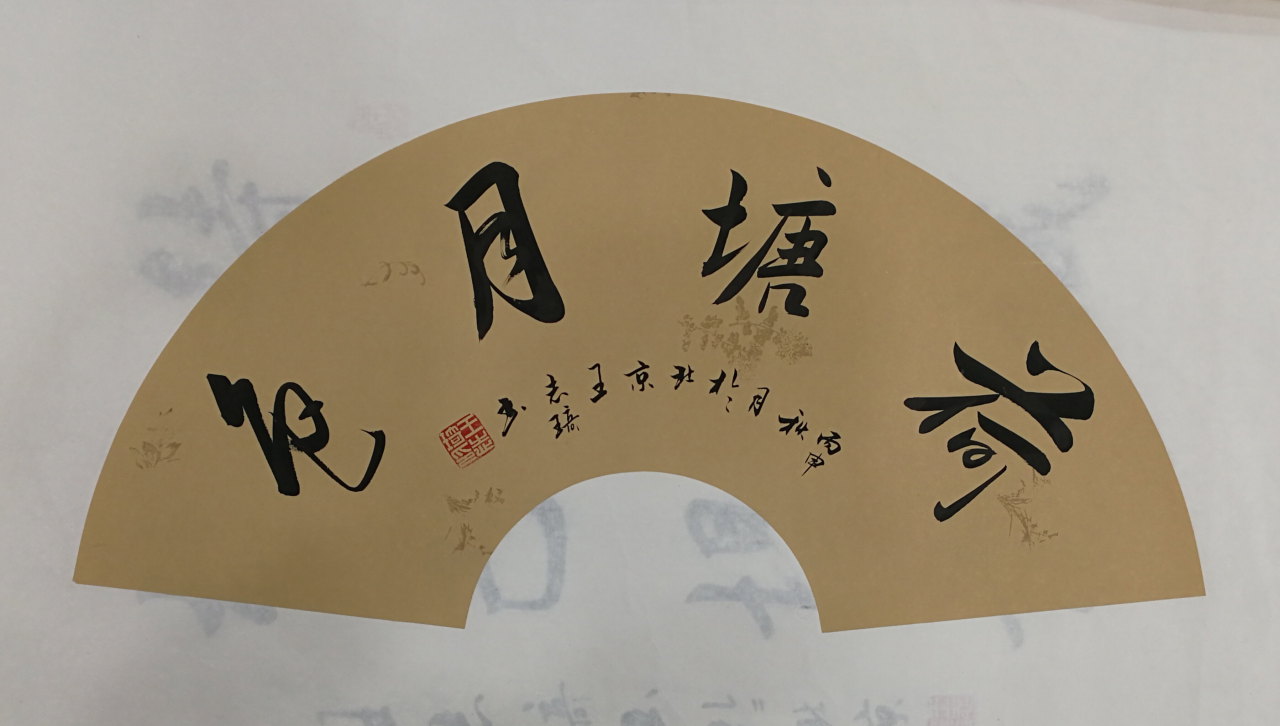 荷塘月色
丙申秋月於北京王志琦書